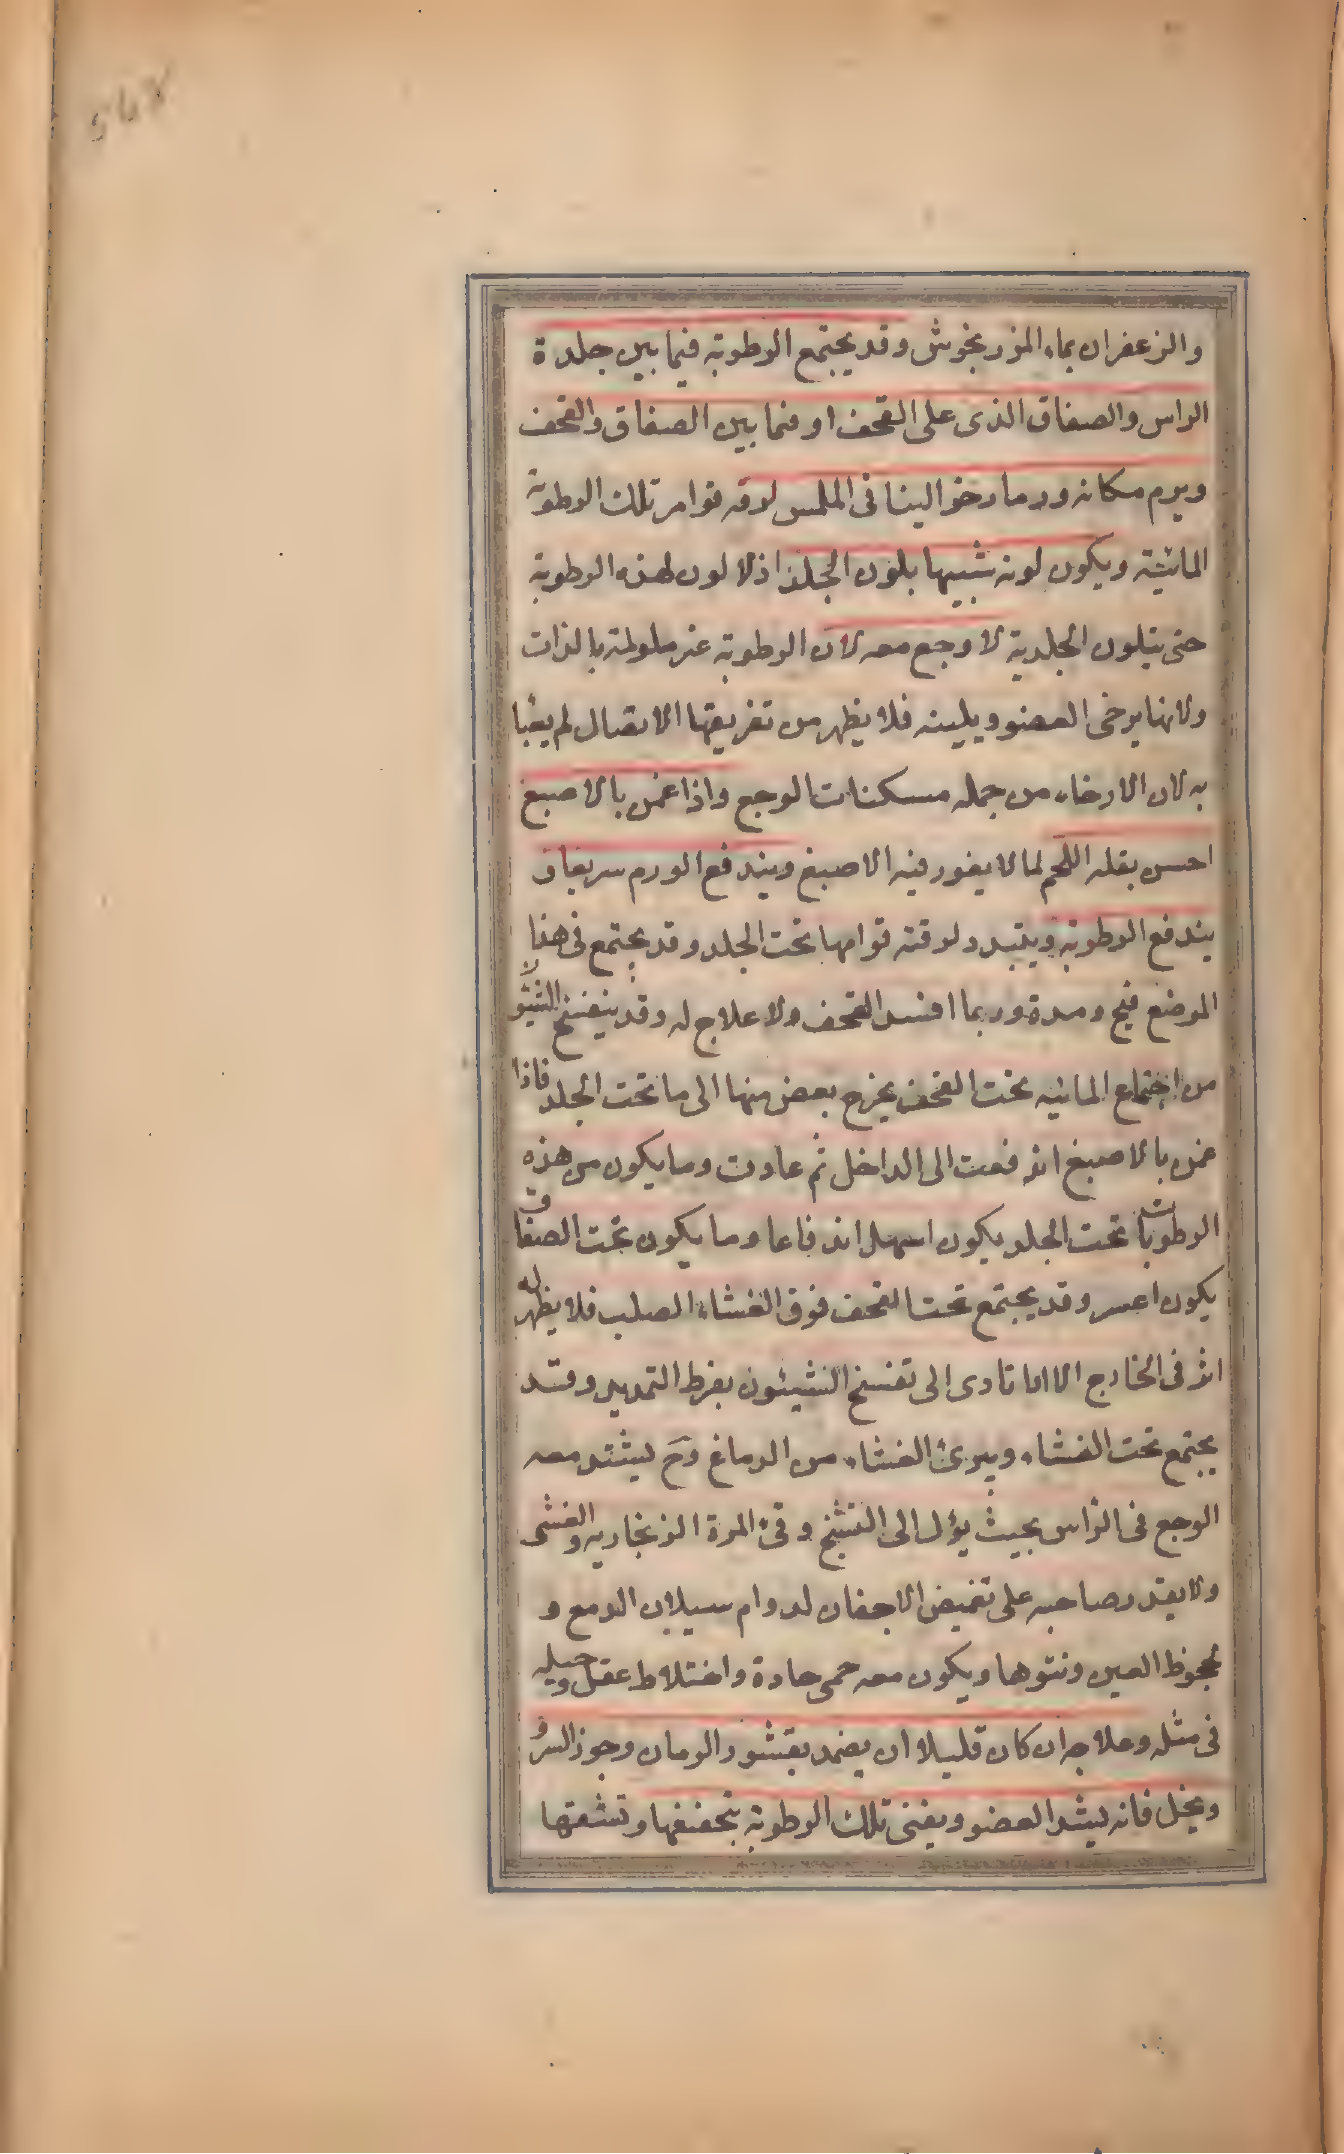 والزعفران بماء المرزنجوش وقد يجتمع الرطوبة فيما بين جلدة
الراس والصفاق الذى على القحف او فيما بين الصفاق والقحف
ويرم مكانه ورما رخوا لينا فى الملمس لرقه قوام تلك الرطوبة
المائية ويكون لونه شبيها بلون الجلد اذ لا لون لهذه الرطوبة
حتى يتلون الجلدية لا وجع معه لان الرطوبة غير ملولمة بالذات
ولانها يرخى العضو ويلينه فلا يظهر من تفريقها الاتصال لم يعبا
به لان الارخاء من جمله مسكنات الوجع واذا غمز بالاصبع
احس بقله اللحم لما لا يغور فيه الاصبع ويندفع الورم سريعا ف
يندفع الرطوبة ويتبدد لرقته قوامها تحت الجلد وقد يجتمع فى هذا
الموضع قيح ومدة وربما افسد القحف ولا علاج له وقد ينفسخ الشئيو
من اجتماع المائيه تحت القحف يخرج بعض منها الى ما تحت الجلد فاذا
غمز بالاصبع اندفعت الى الداخل ثم عادت وما يكون من هذه
الرطوبات تحت الجلد يكون اسهل اندفاعا وما يكون تحت الصفاق
يكون اعسر وقد يجتمع تحت القحف فوق الغشاء الصلب فلا يظهر له
اثر فى الخارج الا اذا تادى الى تفسخ الشئيون بفرط التمديد وقد
يجتمع تحت الغشاء ويبرئ الغشاء من الدماغ وح يشتد معه
الوجع فى الراس بحيث يؤل الى التشنج وقئ المرة الزنجاريه والغشى
ولا يقدر صاحبه على تغميض الاجفان لدوام سيلان الدمع و
جحوظ العين ونتوها ويكون معه حمى حادة واختلاط عقل وحيله
فى مثله وعلاجه ان كان قليلا ان يضمد بقشور الرمان وجوز السرو
وبخل فانه يشد العضو ويفنى تلك الرطوبة بتجفيفها وتشفها